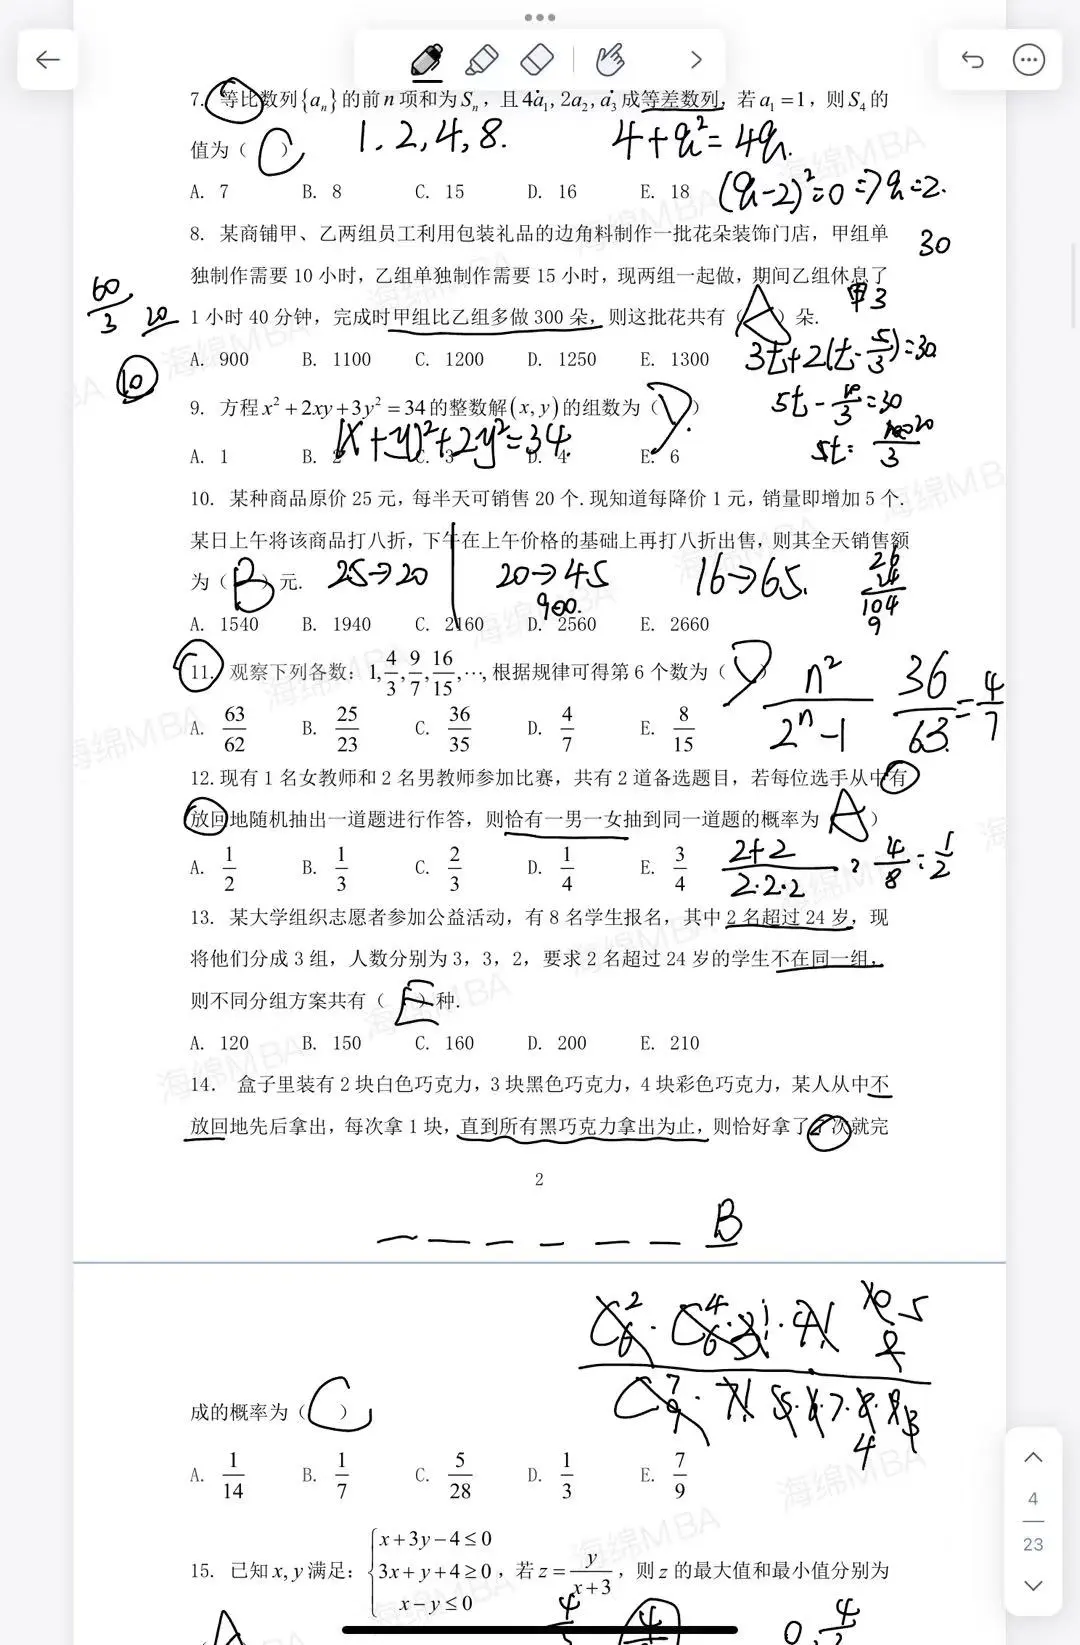 7. 等比数列{aₙ}的前n项和为Sₙ，且4a₁, 2a₂, a₃成等差数列，若a₁=1，则S₄的
1,2,4,8. 4+q²=4q.
值为（C）
A. 7 B. 8 C. 15 D. 16 E. 18 (q-2)²=0⇒q=2.
8. 某商铺甲、乙两组员工利用包装礼品的边角料制作一批花朵装饰门店，甲组单 30
独制作需要 10 小时，乙组单独制作需要 15 小时，现两组一起做，期间乙组休息了
60/3 20 甲3
1 小时 40 分钟，完成时甲组比乙组多做 300 朵，则这批花共有（A）朵.
10 A. 900 B. 1100 C. 1200 D. 1250 E. 1300 3t+2(t-5/3)=30
9. 方程x²+2xy+3y²=34的整数解(x, y)的组数为（D） 5t-10/3=30
(x+y)²+2y²=34.
A. 1 B. 2 C. 3 D. 4 E. 6 5t=100/3 20
10. 某种商品原价 25 元，每半天可销售 20 个. 现知道每降价 1 元，销量即增加 5 个.
某日上午将该商品打八折，下午在上午价格的基础上再打八折出售，则其全天销售额
为（B）元. 25→20 20→45 900. 16→65. 26 24 104 9
A. 1540 B. 1940 C. 2160 D. 2560 E. 2660
11. 观察下列各数：1, 4/3, 9/7, 16/15, ⋯, 根据规律可得第 6 个数为（D） n²/(2ⁿ-1) 36/63=4/7
A. 63/62 B. 25/23 C. 36/35 D. 4/7 E. 8/15
12. 现有 1 名女教师和 2 名男教师参加比赛，共有 2 道备选题目，若每位选手从中有
放回地随机抽出一道题进行作答，则恰有一男一女抽到同一道题的概率为（A）
A. 1/2 B. 1/3 C. 2/3 D. 1/4 E. 3/4 2+2/2·2·2 = 4/8=1/2
13. 某大学组织志愿者参加公益活动，有 8 名学生报名，其中 2 名超过 24 岁，现
将他们分成 3 组，人数分别为 3，3，2，要求 2 名超过 24 岁的学生不在同一组，
则不同分组方案共有（E）种.
A. 120 B. 150 C. 160 D. 200 E. 210
14. 盒子里装有 2 块白色巧克力，3 块黑色巧克力，4 块彩色巧克力，某人从中不
放回地先后拿出，每次拿 1 块，直到所有黑巧克力拿出为止，则恰好拿了7次就完
2
B
成的概率为（C）
A. 1/14 B. 1/7 C. 5/28 D. 1/3 E. 7/9
15. 已知x, y满足：{x+3y-4≤0
3x+y+4≥0，若z=y/(x+3)，则z的最大值和最小值分别为
x-y≤0
4
23
海绵MBA